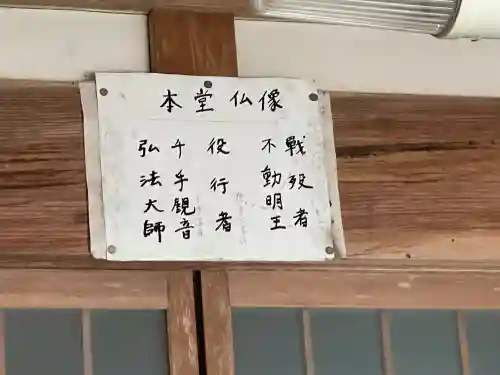 本堂仏像
戦死者
不動明王
役行者
千手観音
弘法大師